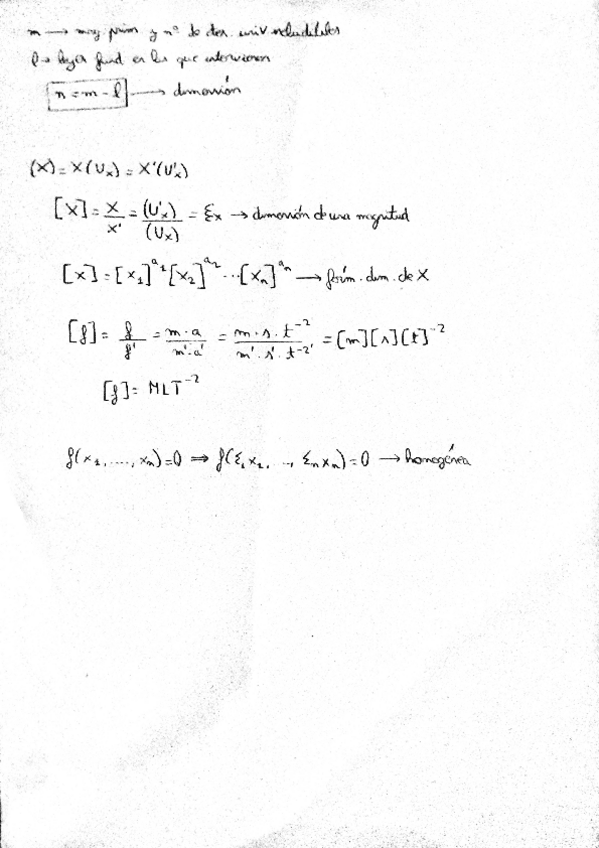 m → mag prim y nº de ctes. univ ineludibles
l → leyes fund en las que intervienen
n = m - l → dimensión
(X) = X(Ux) = X'(U'x)
[X] = X/X' = (U'x)/(Ux) = Ɛx → dimensión de una magnitud
[x] = [x₁]^a₁ [x₂]^a₂ ... [xn]^an → fórm. dim. de X
[f] = f/f' = m·a/m'·a' = m·s·t⁻²/m'·s'·t⁻²' = [m][s][t]⁻²
[f] = MLT⁻²
f(x₁, ...., xn) = 0 ⇒ f(Ɛ₁x₁, .., Ɛnxn) = 0 → homogénea